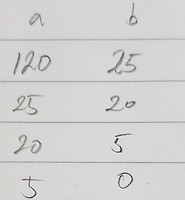 a b
120 25
25 20
20 5
5 0